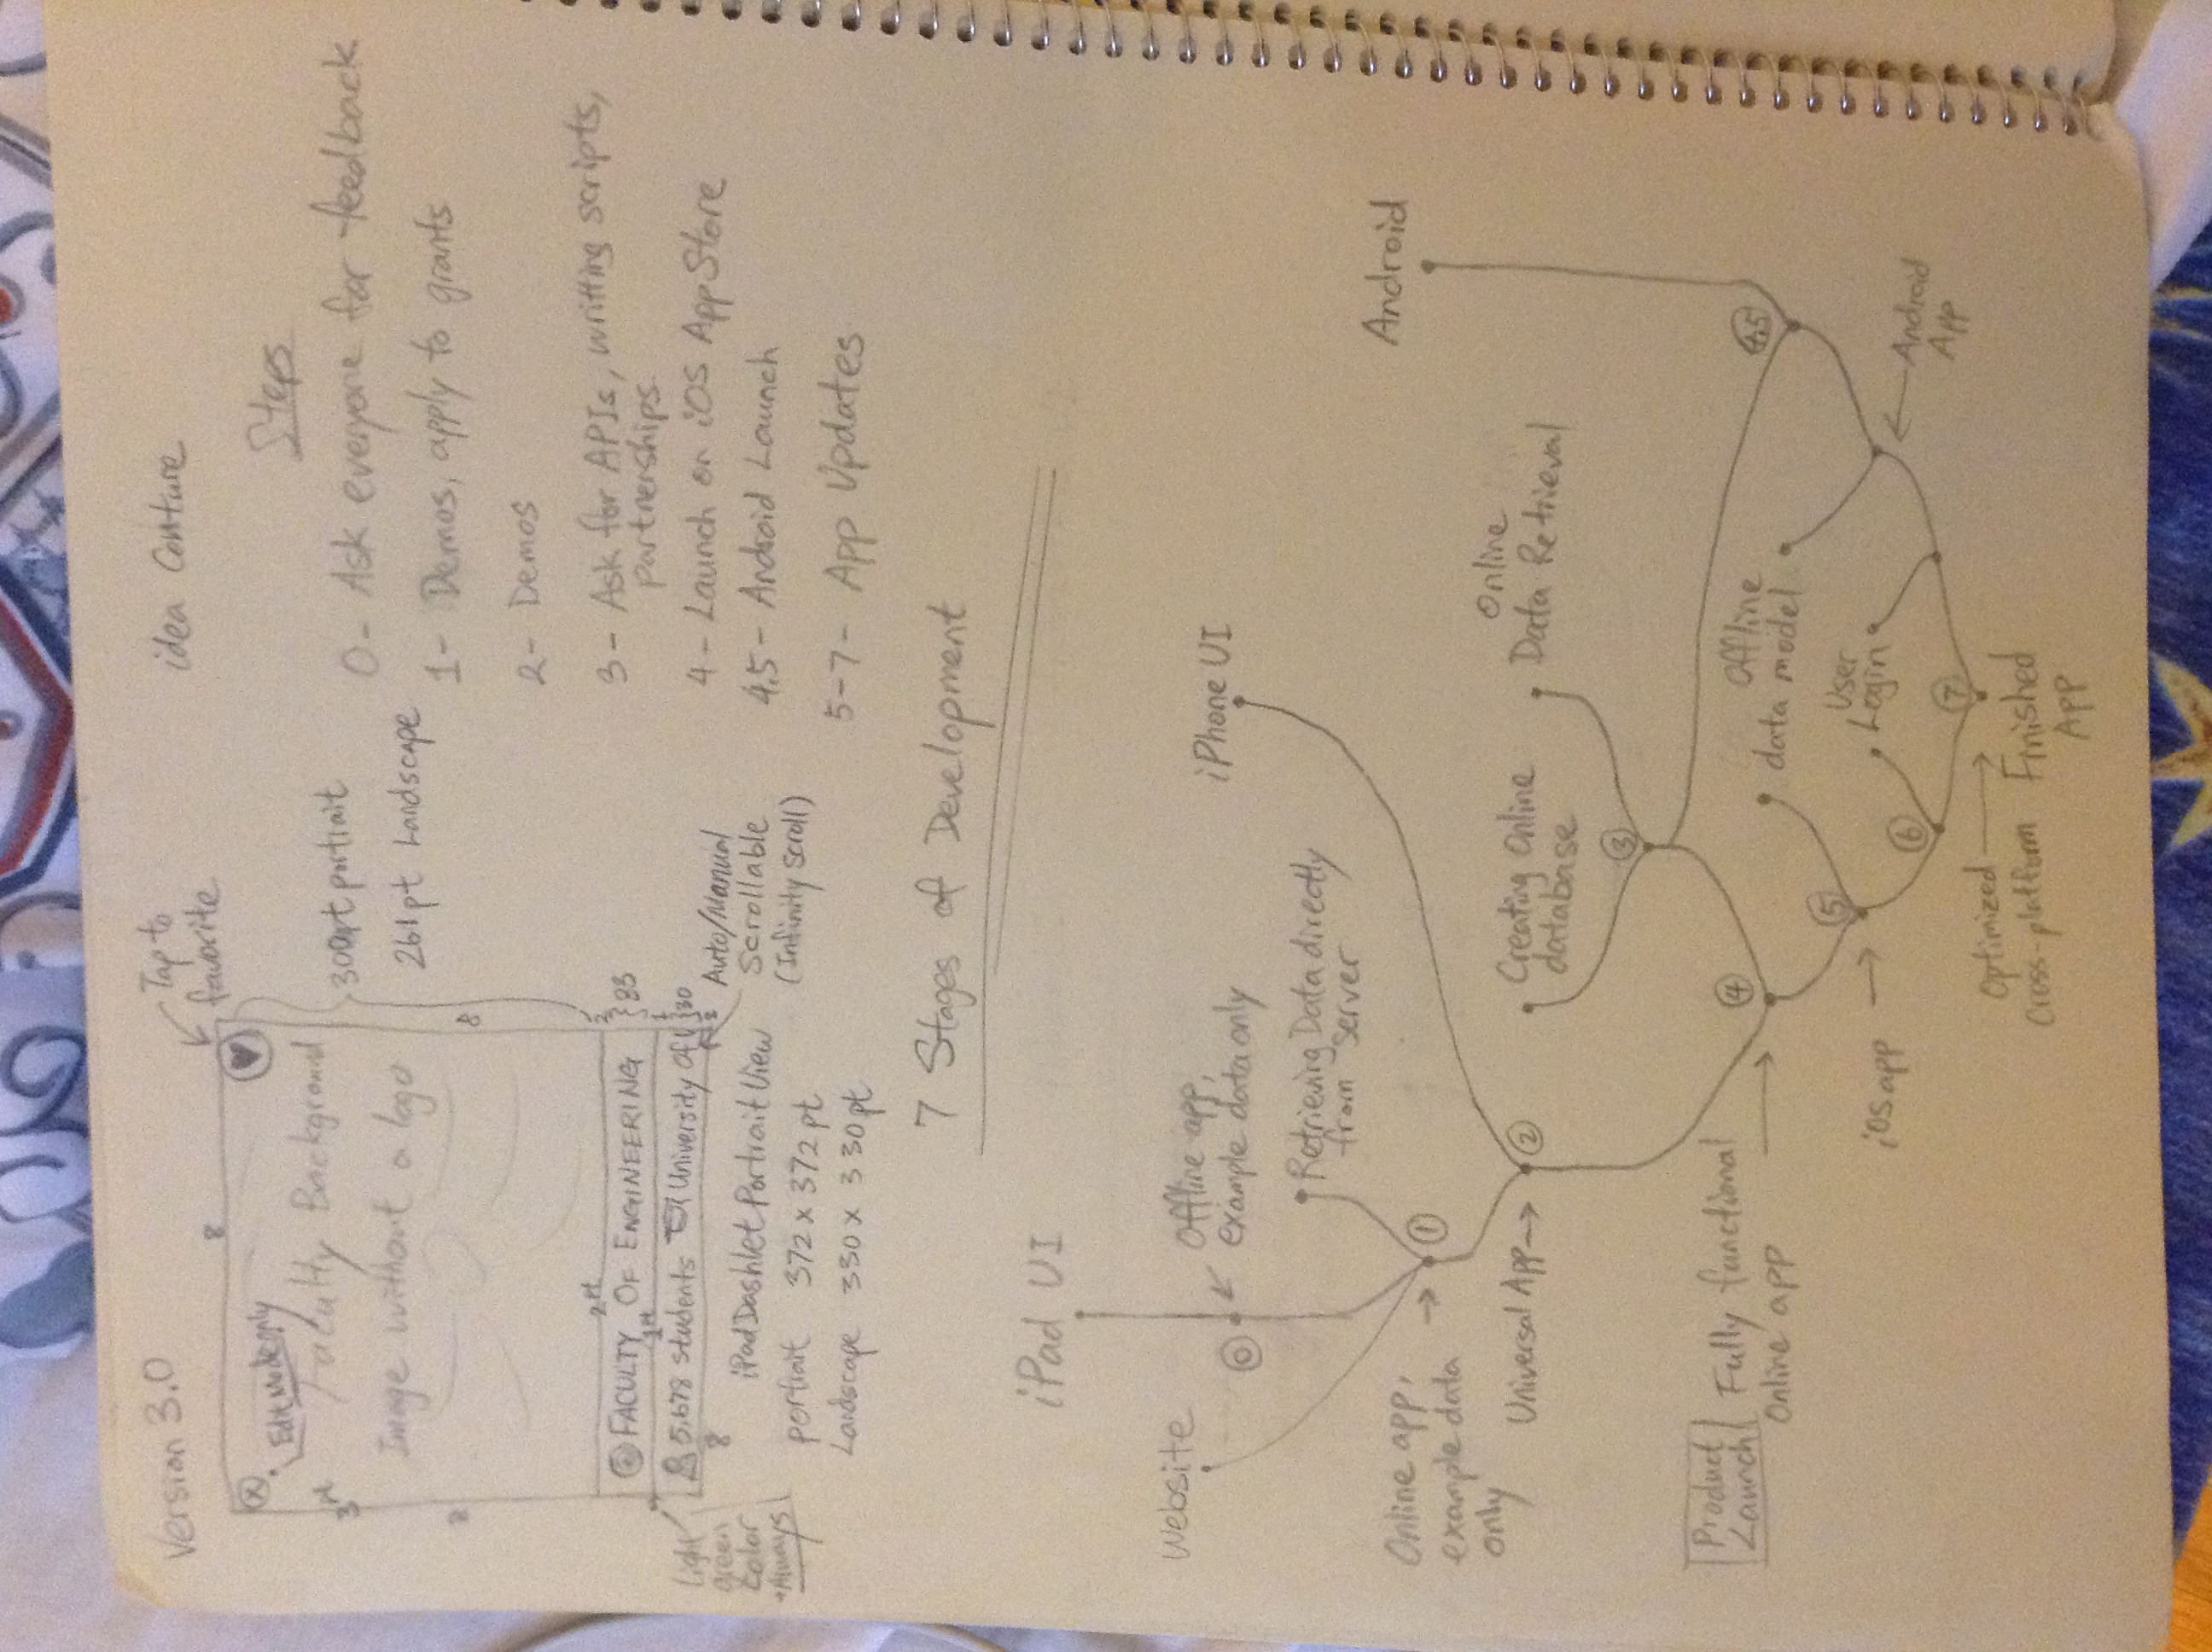 Version 3.0
Tap to
favorite
8
X
Edit Mode only
Faculty Background
Image without a logo
3pt
8
8
300pt portrait
261pt Landscape
2pt
FACULTY OF ENGINEERING
83
1pt
5,678 students University Of
30
8
Light
green
color
Always
Auto/Manual
Scrollable
(Infinity Scroll)
iPad Dashlet Portrait View
portrait 372 x 372 pt
Landscape 330 x 330 pt
idea Conture
Steps
0- Ask everyone for feedback
1- Demos, apply to grants
2- Demos
3- Ask for APIs, writting scripts,
partnerships
4- Launch on iOS App Store
4.5- Android Launch
5-7- App Updates
7 Stages of Development
iPad UI
Website
0
Offline app,
example data only
iPhone UI
Retrieving Data directly
from server
Android
Online app,
example data
only
1
Universal App
2
Creating Online
database
Online
Data Retrieval
3
Product
Launch
Fully functional
Online app
4
Offline
data model
4.5
5
iOS app
User
Login
6
Android
App
7
Optimized
Cross-platform
Finished
App